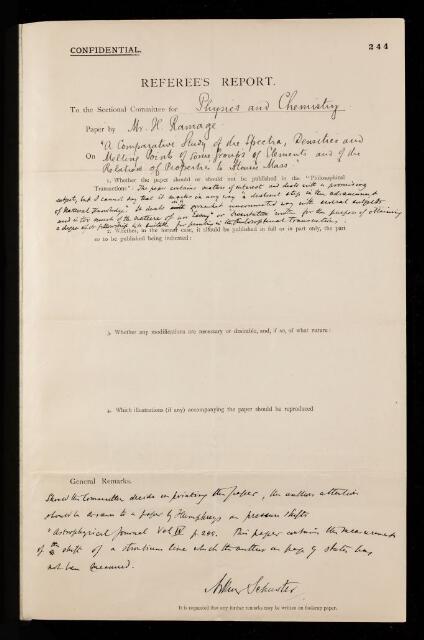 CONFIDENTIAL.
244
REFEREE'S REPORT.
To the Sectional Committee for Physics and Chemistry
Paper by Mr. H. Ramage
"A Comparative Study of the Spectra, Densities and
On Melting Points of some groups of Elements and of the
Relation of Properties to Atomic Mass."
1. Whether the paper should or should not be published in the "Philosophical
Transactions": The paper contains matter of interest and deals with a promising
subject, but I cannot say that it marks in any way a distinct step in the advancement
of Natural Knowledge. It deals in a somewhat unconnected way with several subjects
and is too much of the nature of an Essay or Dissertation written for the purpose of obtaining
a degree or fellowship to be suitable for printing in the Philosophical Transactions.
2. Whether, in the former case, it should be published in full or in part only, the part
so to be published being indicated:
3. Whether any modifications are necessary or desirable, and, if so, of what nature:
4. Which illustrations (if any) accompanying the paper should be reproduced
General Remarks.
Should the Committee decide on printing the paper, the authors attention
should be drawn to a paper by Humphreys on pressure shifts
"Astrophysical Journal Vol IV p. 249. This paper contains the measurement
of the shift of a strontium line which the author on page 9 states has
not been measured.
Arthur Schuster
It is requested that any further remarks may be written on foolscap paper.